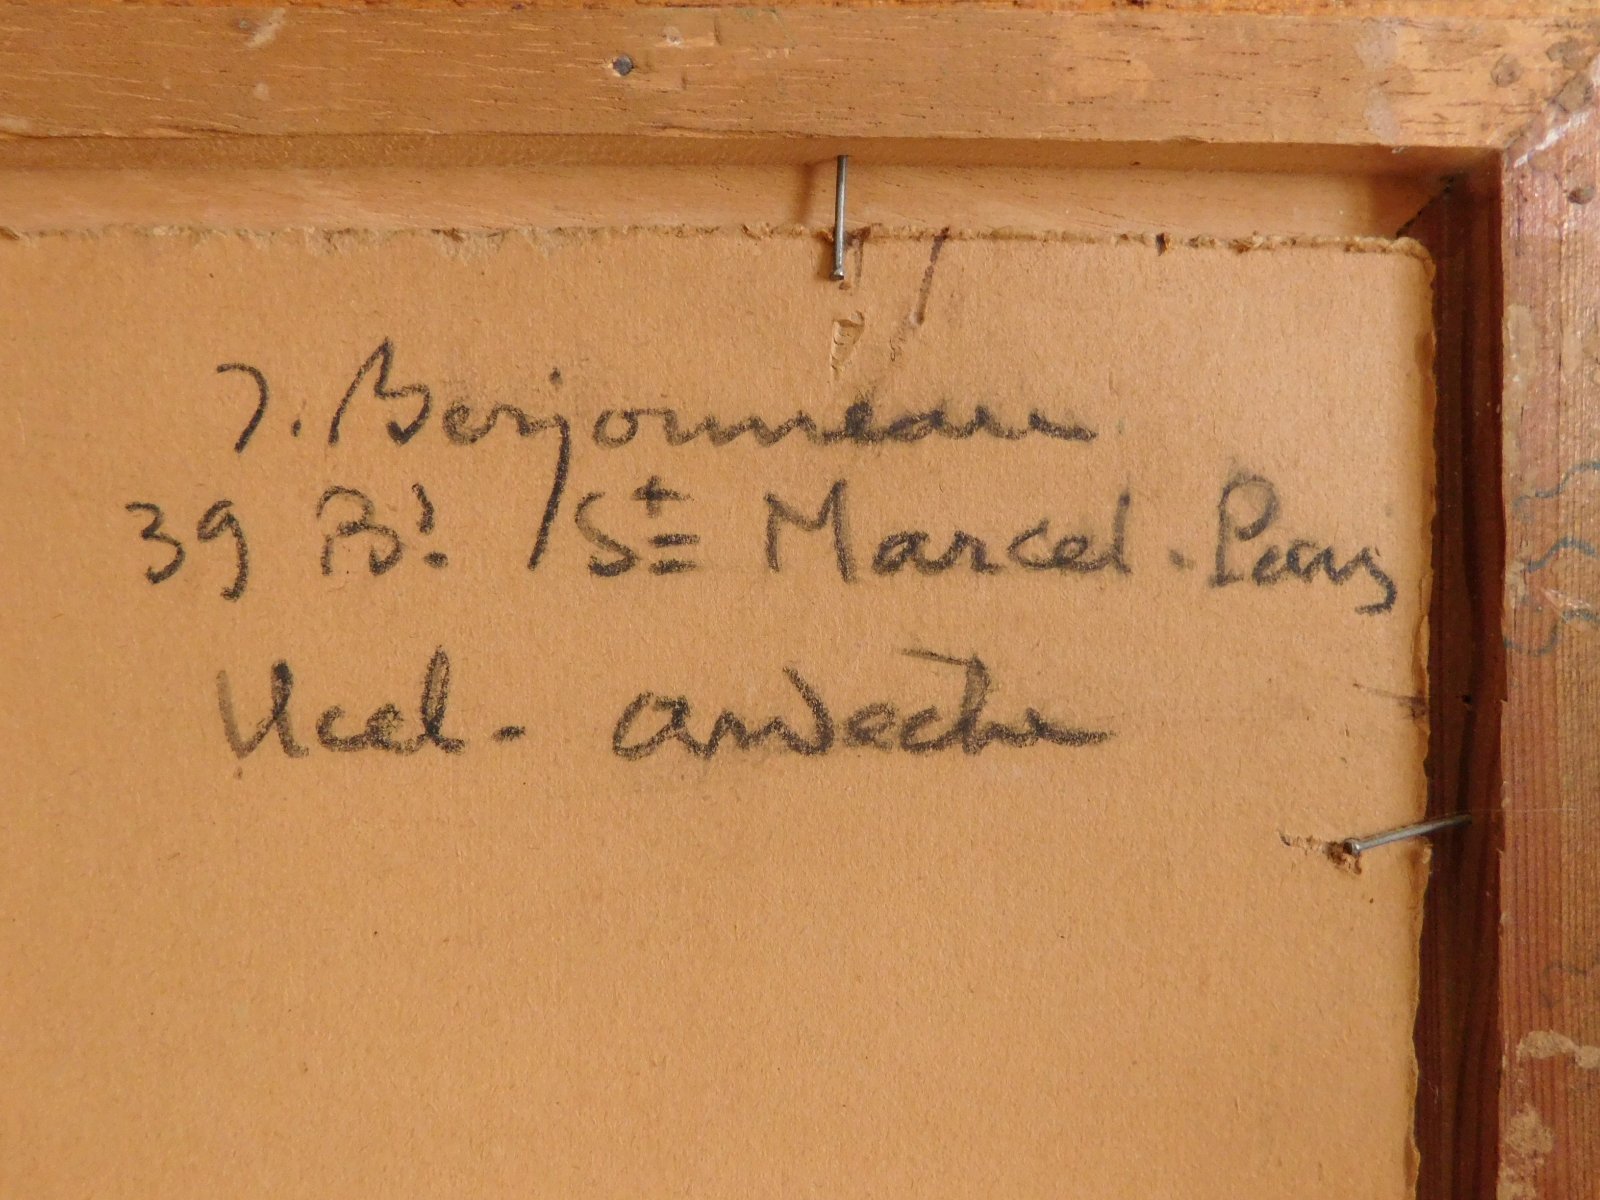 J. Berjonneau
39 Bd St Marcel. Paris
Ucel - ardeche